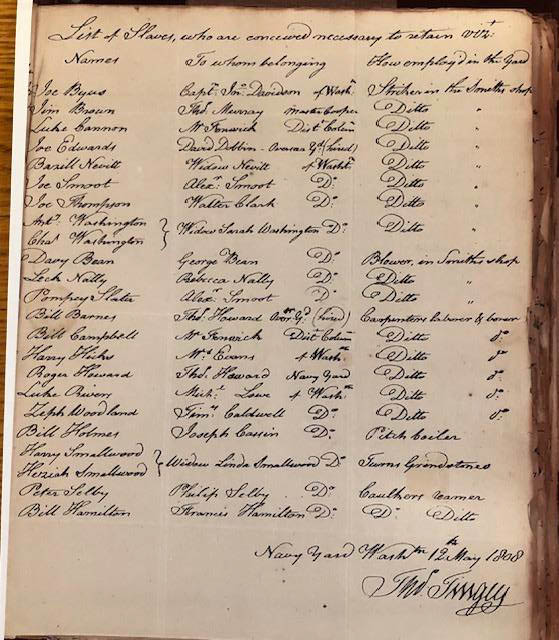 List of Slaves, who are conceived necessary to retain Vizt:
Names To whom belonging How employ'd in the Yard
Joe Byus Captn. Jno. Davidson of Washn. Striker in the Smiths shop
Jim Brown Thos. Murray master Cooper Ditto "
Luke Cannon Mr Fenwick Distt Columa Ditto "
Joe Edwards David Dobbin - Overseer Yd (hired) Ditto "
Bazill Nevitt Widow Nevitt of Washn. Ditto "
Joe Smoot Alexr. Smoot Do. Ditto "
Joe Thompson Walter Clark Do. Ditto "
Anty. Washington
Chas. Washington } Widow Sarah Washington Do. Ditto "
Davy Bean George Bean Do. Blower, in Smiths shop
Leck Nally Rebecca Nally Do. Ditto "
Pompey Slater Alexr. Smoot Do. Ditto "
Bill Barnes Thos. Howard Overr. Yd. (hired) Carpenters laborer & borer
Bill Campbell Mr Fenwick Distt Columa Ditto do.
Harry Hicks Mrs Evans of Washn. Ditto do.
Roger Howard Thos. Howard Navy Yard Ditto do.
Luke Rivers Michl. Lowe of Washn. Ditto do.
Zeph Woodland Timy. Caldwell Do. Ditto do.
Bill Holmes Joseph Cassin Do. Pitch Boiler
Harry Smallwood
Heziah Smallwood } Widow Linda Smallwood Do. Turns Grindstones
Peter Selby Philip Selby Do. Caulkers reamer
Bill Hamilton Francis Hamilton Do. Do. Ditto
Navy Yard Washtn 12th May 1808
Thos. Tingey